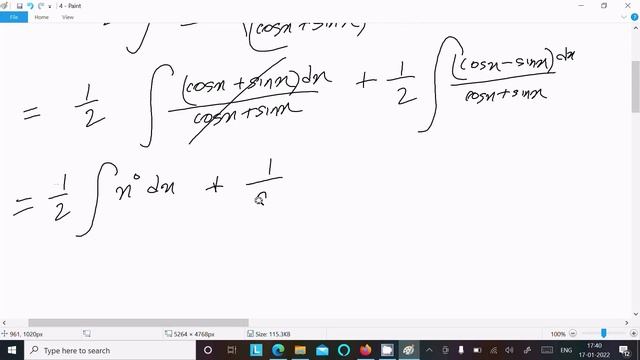 4 - Paint
File Home View
(cosx+sinx)
= 1/2 ∫ (cosx + sinx) dx / cosx + sinx + 1/2 ∫ (cosx - sinx) dx / cosx + sinx
= 1/2 ∫ x° dx + 1/
961, 1020px 5264 × 4768px Size: 115.3KB 100%
Type here to search ENG 17:40
17-01-2022